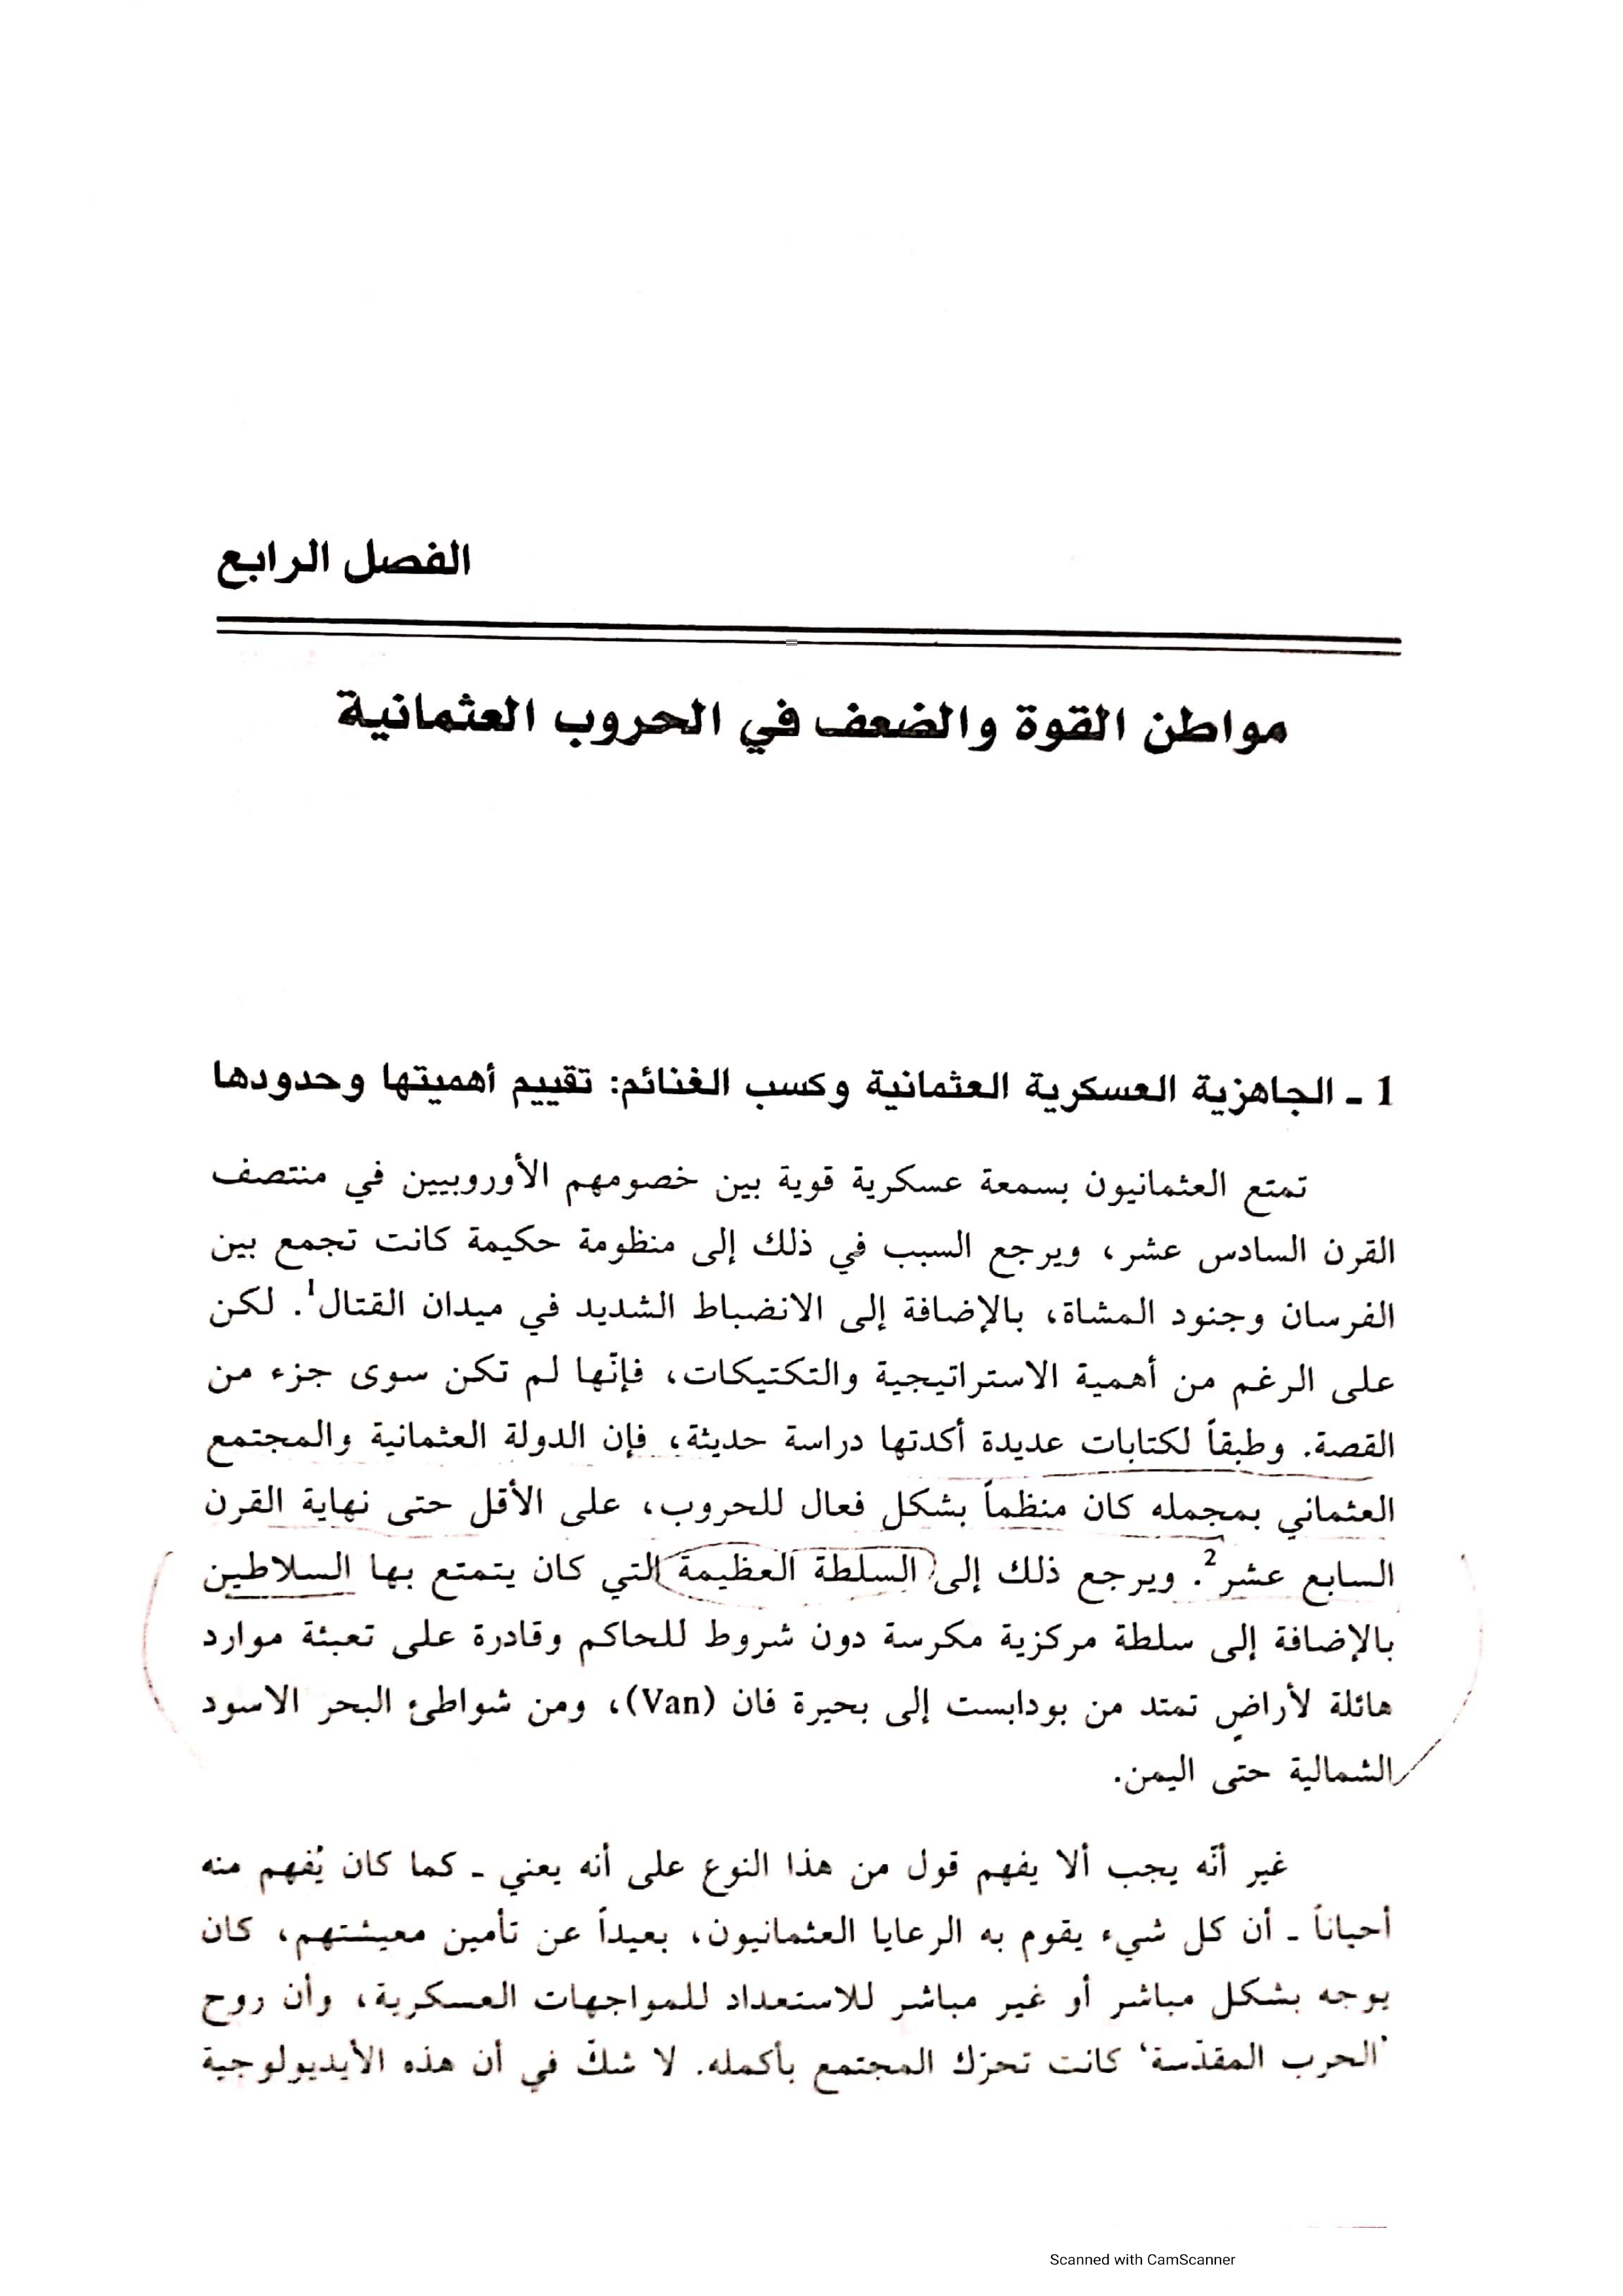 الفصل الرابع
مواطن القوة والضعف في الحروب العثمانية
1 ـ الجاهزية العسكرية العثمانية وكسب الغنائم: تقييم أهميتها وحدودها
تمتع العثمانيون بسمعة عسكرية قوية بين خصومهم الأوروبيين في منتصف
القرن السادس عشر، ويرجع السبب في ذلك إلى منظومة حكيمة كانت تجمع بين
الفرسان وجنود المشاة، بالإضافة إلى الانضباط الشديد في ميدان القتال1. لكن
على الرغم من أهمية الاستراتيجية والتكتيكات، فإنّها لم تكن سوى جزء من
القصة. وطبقاً لكتابات عديدة أكدتها دراسة حديثة، فإن الدولة العثمانية والمجتمع
العثماني بمجمله كان منظماً بشكل فعال للحروب، على الأقل حتى نهاية القرن
السابع عشر2. ويرجع ذلك إلى السلطة العظيمة التي كان يتمتع بها السلاطين
بالإضافة إلى سلطة مركزية مكرسة دون شروط للحاكم وقادرة على تعبئة موارد
هائلة لأراضٍ تمتد من بودابست إلى بحيرة فان (Van)، ومن شواطئ البحر الاسود
الشمالية حتى اليمن.
غير أنّه يجب ألا يفهم قول من هذا النوع على أنه يعني ـ كما كان يُفهم منه
أحياناً ـ أن كل شيء يقوم به الرعايا العثمانيون، بعيداً عن تأمين معيشتهم، كان
يوجه بشكل مباشر أو غير مباشر للاستعداد للمواجهات العسكرية، وأن روح
'الحرب المقدّسة' كانت تحرّك المجتمع بأكمله. لا شكّ في أن هذه الأيديولوجية
Scanned with CamScanner